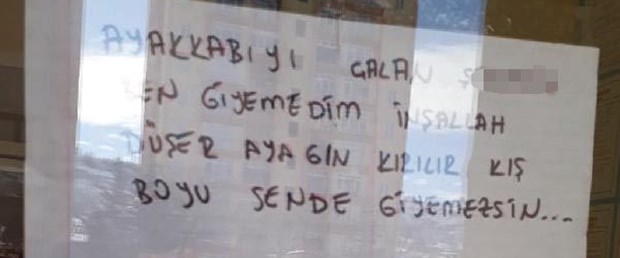 AYAKKABIYI GALAN Ş
BEN GİYEMEDİM İNŞALLAH
DÜŞER AYAGIN KIRILIR KIŞ
BOYU SENDE GİYEMEZSİN...